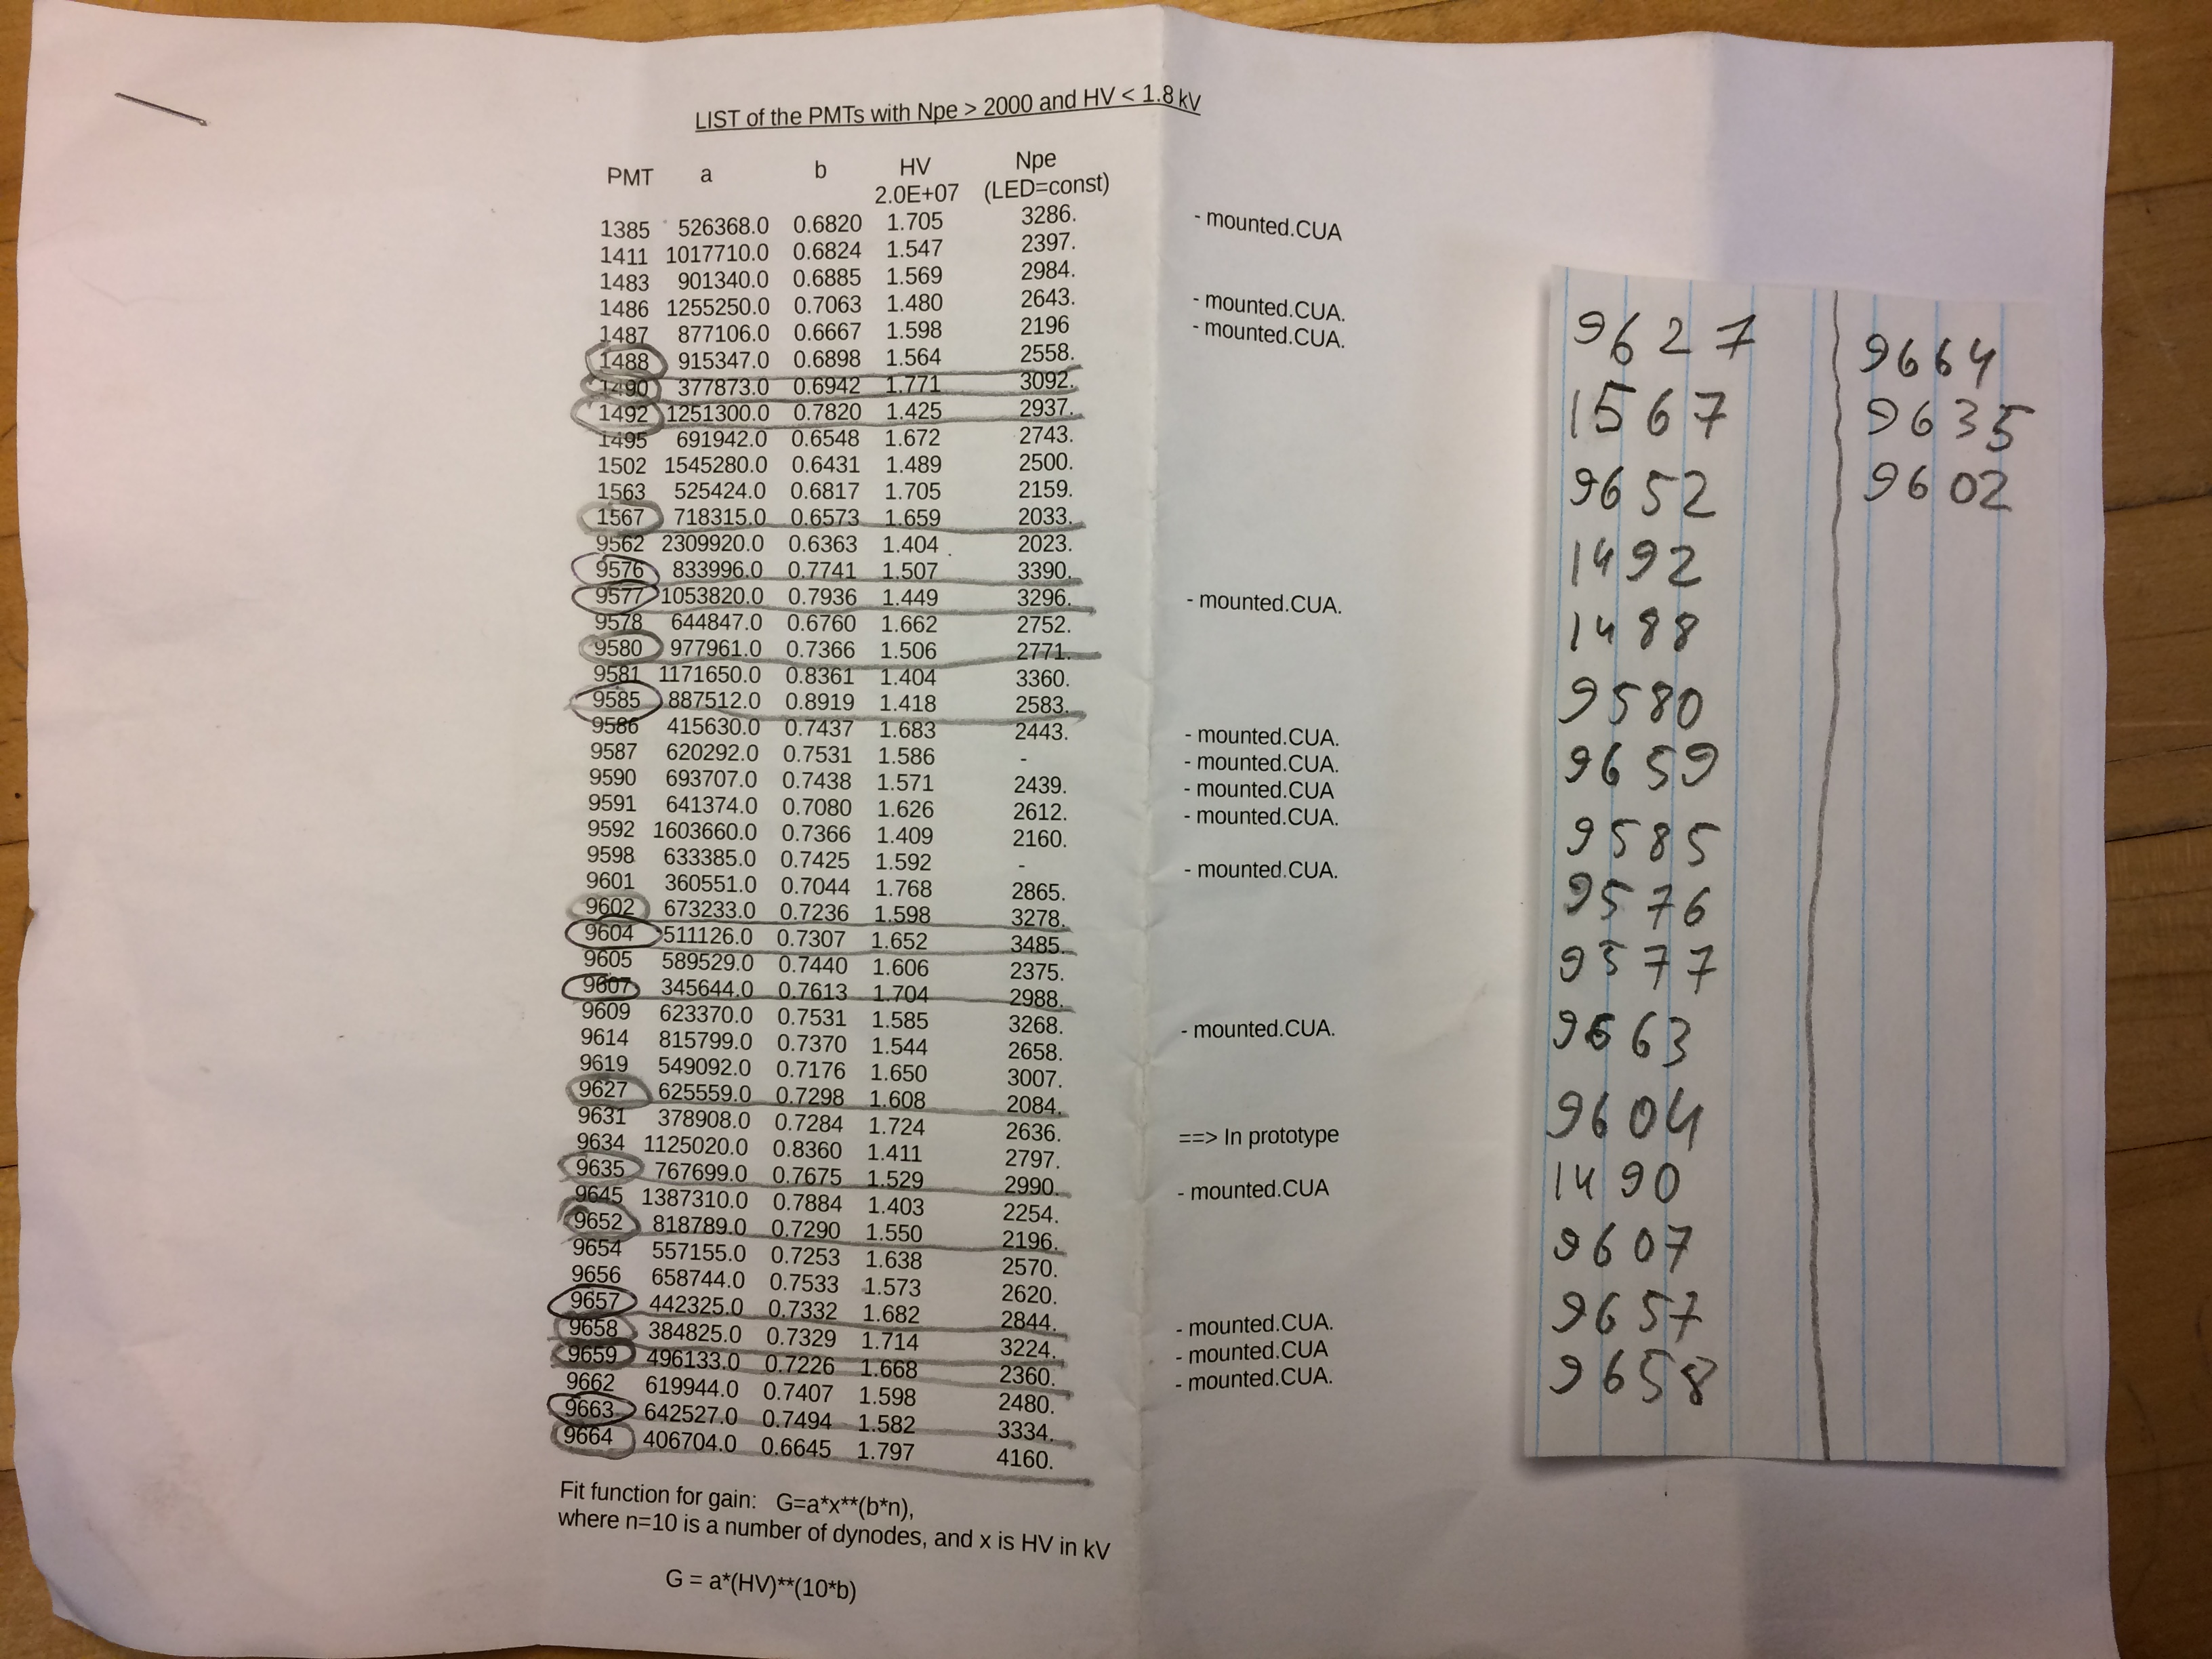 LIST of the PMTs with Npe > 2000 and HV < 1.8 kV
PMT a b HV Npe
2.0E+07 (LED=const)
1385 526368.0 0.6820 1.705 3286. - mounted.CUA
1411 1017710.0 0.6824 1.547 2397.
1483 901340.0 0.6885 1.569 2984.
1486 1255250.0 0.7063 1.480 2643. - mounted.CUA.
1487 877106.0 0.6667 1.598 2196 - mounted.CUA.
1488 915347.0 0.6898 1.564 2558.
1490 377873.0 0.6942 1.771 3092.
1492 1251300.0 0.7820 1.425 2937.
1495 691942.0 0.6548 1.672 2743.
1502 1545280.0 0.6431 1.489 2500.
1563 525424.0 0.6817 1.705 2159.
1567 718315.0 0.6573 1.659 2033.
9562 2309920.0 0.6363 1.404 2023.
9576 833996.0 0.7741 1.507 3390.
9577 1053820.0 0.7936 1.449 3296. - mounted.CUA.
9578 644847.0 0.6760 1.662 2752.
9580 977961.0 0.7366 1.506 2771.
9581 1171650.0 0.8361 1.404 3360.
9585 887512.0 0.8919 1.418 2583.
9586 415630.0 0.7437 1.683 2443. - mounted.CUA.
9587 620292.0 0.7531 1.586 - - mounted.CUA.
9590 693707.0 0.7438 1.571 2439. - mounted.CUA
9591 641374.0 0.7080 1.626 2612. - mounted.CUA.
9592 1603660.0 0.7366 1.409 2160.
9598 633385.0 0.7425 1.592 - - mounted.CUA.
9601 360551.0 0.7044 1.768 2865.
9602 673233.0 0.7236 1.598 3278.
9604 511126.0 0.7307 1.652 3485.
9605 589529.0 0.7440 1.606 2375.
9607 345644.0 0.7613 1.704 2988.
9609 623370.0 0.7531 1.585 3268. - mounted.CUA.
9614 815799.0 0.7370 1.544 2658.
9619 549092.0 0.7176 1.650 3007.
9627 625559.0 0.7298 1.608 2084.
9631 378908.0 0.7284 1.724 2636. ==> In prototype
9634 1125020.0 0.8360 1.411 2797.
9635 767699.0 0.7675 1.529 2990. - mounted.CUA
9645 1387310.0 0.7884 1.403 2254.
9652 818789.0 0.7290 1.550 2196.
9654 557155.0 0.7253 1.638 2570.
9656 658744.0 0.7533 1.573 2620.
9657 442325.0 0.7332 1.682 2844. - mounted.CUA.
9658 384825.0 0.7329 1.714 3224. - mounted.CUA
9659 496133.0 0.7226 1.668 2360. - mounted.CUA.
9662 619944.0 0.7407 1.598 2480.
9663 642527.0 0.7494 1.582 3334.
9664 406704.0 0.6645 1.797 4160.
Fit function for gain: G=a*x**(b*n),
where n=10 is a number of dynodes, and x is HV in kV
G = a*(HV)**(10*b)
9627
1567
9652
1492
1488
9580
9659
9585
9576
9577
9663
9604
1490
9607
9657
9658
9664
9635
9602